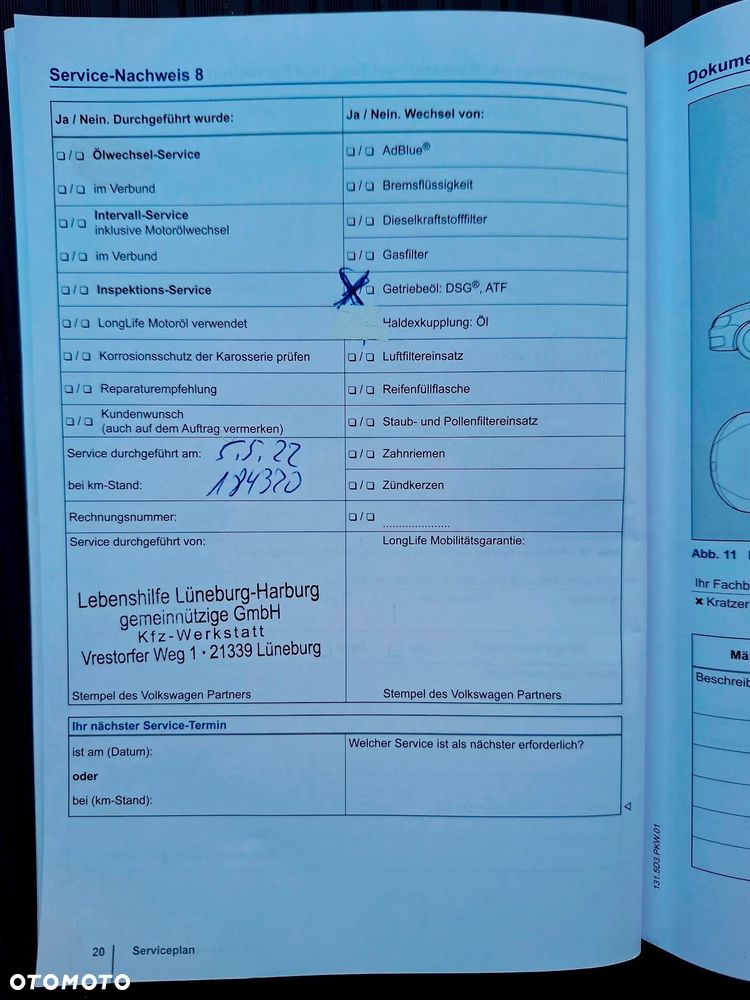 Service-Nachweis 8
Ja / Nein. Durchgeführt wurde:
❑ / ❑ Ölwechsel-Service
❑ / ❑ im Verbund
❑ / ❑ Intervall-Service
inklusive Motorölwechsel
❑ / ❑ im Verbund
❑ / ❑ Inspektions-Service
❑ / ❑ LongLife Motoröl verwendet
❑ / ❑ Korrosionsschutz der Karosserie prüfen
❑ / ❑ Reparaturempfehlung
❑ / ❑ Kundenwunsch
(auch auf dem Auftrag vermerken)
Service durchgeführt am: 5.5.22
bei km-Stand: 184320
Rechnungsnummer:
Service durchgeführt von:
Lebenshilfe Lüneburg-Harburg
gemeinnützige GmbH
Kfz-Werkstatt
Vrestorfer Weg 1 · 21339 Lüneburg
Stempel des Volkswagen Partners
Ja / Nein. Wechsel von:
❑ / ❑ AdBlue®
❑ / ❑ Bremsflüssigkeit
❑ / ❑ Dieselkraftstofffilter
❑ / ❑ Gasfilter
X / ❑ Getriebeöl: DSG®, ATF
Haldexkupplung: Öl
❑ / ❑ Luftfiltereinsatz
❑ / ❑ Reifenfüllflasche
❑ / ❑ Staub- und Pollenfiltereinsatz
❑ / ❑ Zahnriemen
❑ / ❑ Zündkerzen
❑ / ❑ .....................
LongLife Mobilitätsgarantie:
Stempel des Volkswagen Partners
Ihr nächster Service-Termin
ist am (Datum):
oder
bei (km-Stand):
Welcher Service ist als nächster erforderlich?
20 Serviceplan
131.5D3.PKW.01
Dokume
Abb. 11
Ihr Fachb
× Kratzer
Mä
Beschreib
OTOMOTO